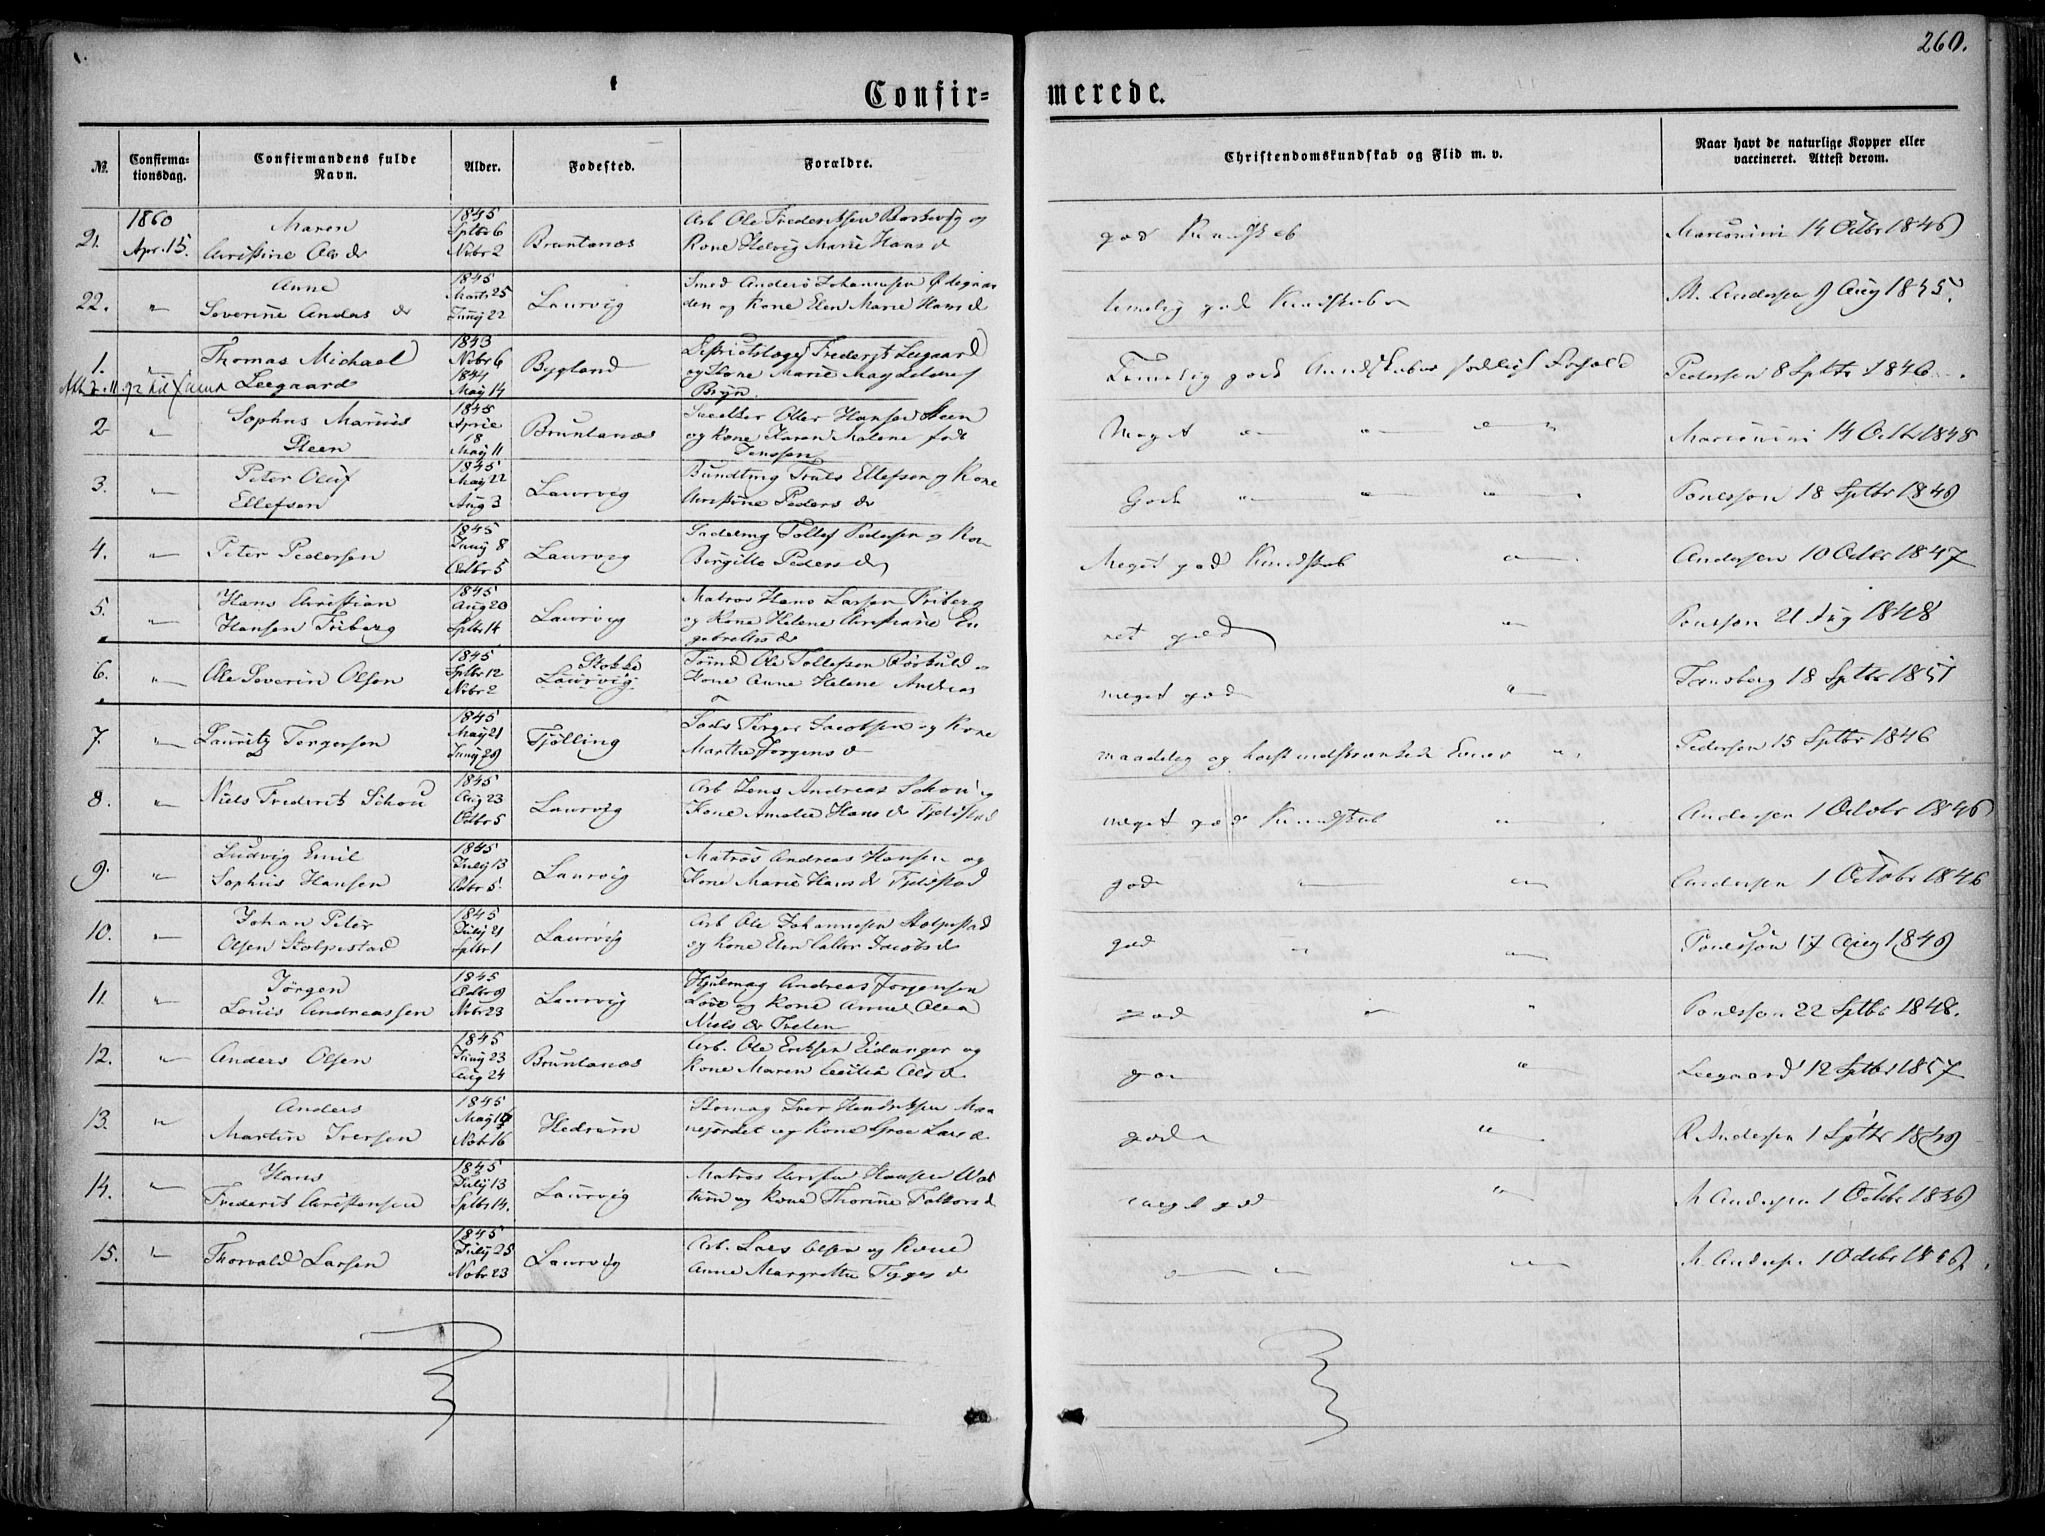 260.
Confir= merede.
No.
Confirma-
tionsdag.
Confirmandens fulde
Navn.
Alder.
Fødested.
Forældre.
Christendomskundskab og Flid m. v.
Naar havt de naturlige Kopper eller
vaccineret. Attest derom.
21. 1860 Apr. 15. Maren
Christine Ols d
1845 Sptbr 6 Nvbr 2
Brunlanæs
Arb Ole Frederiksen
Kone Helvig Marie Hans d
god Kundskab
14 Octbr 1846
22. " Anne
Severine Anders d
1845 Marts 25 Juny 22
Laurvig
Smed Anders Johannesen Ødegaar
den og Kone Elen Marie Hans d
temelig god Kundskab
M. Andersen 9 Aug 1845.
1. " Thomas Michael
Leegaard
1843 Nvbr 6 1844 May 14
Bygland
Districtslæge Frederik Leegaard
og Kone Marie Magdelene f
Bryn.
Temelig god Kundskab
Pedersen 8 Sptbr 1846
2 " Sophus Marius
Steen
1845 April 18 May 11
Brunlanæs
Hansen Steen
og Kone Karen Malene fød
Jenssen
Meget " " " "
14 Octb 1848
3. " Peter Oluf
Ellefsen
1845 May 22 Aug 3
Laurvig
Truls Ellefsen og Kone
Christine Peders d
God " " "
Poulsson 18 Sptbr 1849
4. " Peter Pedersen
1845 Juny 8 Octbr 5
Laurvig
Sadelmg Tollef Pedersen og Kon
Birgitte Peders d
Meget god Kundskab "
Andersen 10 Octbr 1847
5. " Hans Christian
Hansen Friberg
1845 Aug 20 Sptbr 14
Laurvig
Matros Hans Larsen Friberg
og Kone Helene Christiane En
gebrets d
ret god "
Poulsson 21 Aug 1848
6. " Ole Severin Olsen
1845 Sptbr 12 Nvbr 2
Stokke
Laurvig
Tømd Ole Tollefsen
Kone Anne Helene Andreas
d
meget god "
Tønsberg 18 Sptbr 1851
7. " Lauritz Torgersen
1845 May 21 Juny 29
Tjølling
Torger Jacobsen og Kone
Marthe Jørgens d
maadelig og "
Pedersen 15 Sptbr 1846
8. " Niels Frederik Schou
1845 Aug 23 Octbr 5
Laurvig
Arb Jens Andreas Schou og
Kone Amalie Hans d Fjeldstad
meget god Kundskab "
Andersen 1 Octobr 1846
9. " Ludvig Emil
Sophus Hansen
1845 July 13 Octbr 5.
Laurvig
Matros Andreas Hansen og
Kone Marie Hans d Fjeldstad
god " "
Andersen 1 Octobr 1846
10. " Johan Peter
Olsen Stolpestad
1845 July 21 Sptbr 1
Laurvig
Arb Ole Johannesen Stolpestad
og Kone Elen Jacobs d
god " "
Poulsson 17 Aug 1849
11. " Jørgen
Louis Andreassen
1845 Octbr 9 Nvbr 23
Laurvig
Hjulmag Andreas Jørgensen
Love og Kone Anne Olea
Niels d
god " "
Poulsson 22 Sptbr 1848.
12. " Anders Olsen
1845 Juny 23 Aug 24
Brunlanæs
Arb. Ole Eriksen Eidanger og
Kone Maren Cecilia Ols d
god "
Leegaard 12 Sptbr 1857
13. " Anders
Martin Iversen
1845 May 16 Nvbr 16
Hedrum
Iver Hendriksen Maa
nejordet og Kone Gree Lars d
god "
R. Andersen 1 Sptbr 1849
14. " Hans
Frederik Christensen
1845 July 13 Sptbr 14.
Laurvig
Matros Christen Hansen
og Kone Thorine d
meget god "
M Andersen 1 Octbr 1846
15. " Thorvald Larsen
1845 July 25 Nvbr 23
Laurvig
Arb. Lars Olsen og Kone
Anne Margrethe d
" " "
M Andersen 1 Octbr 1846.